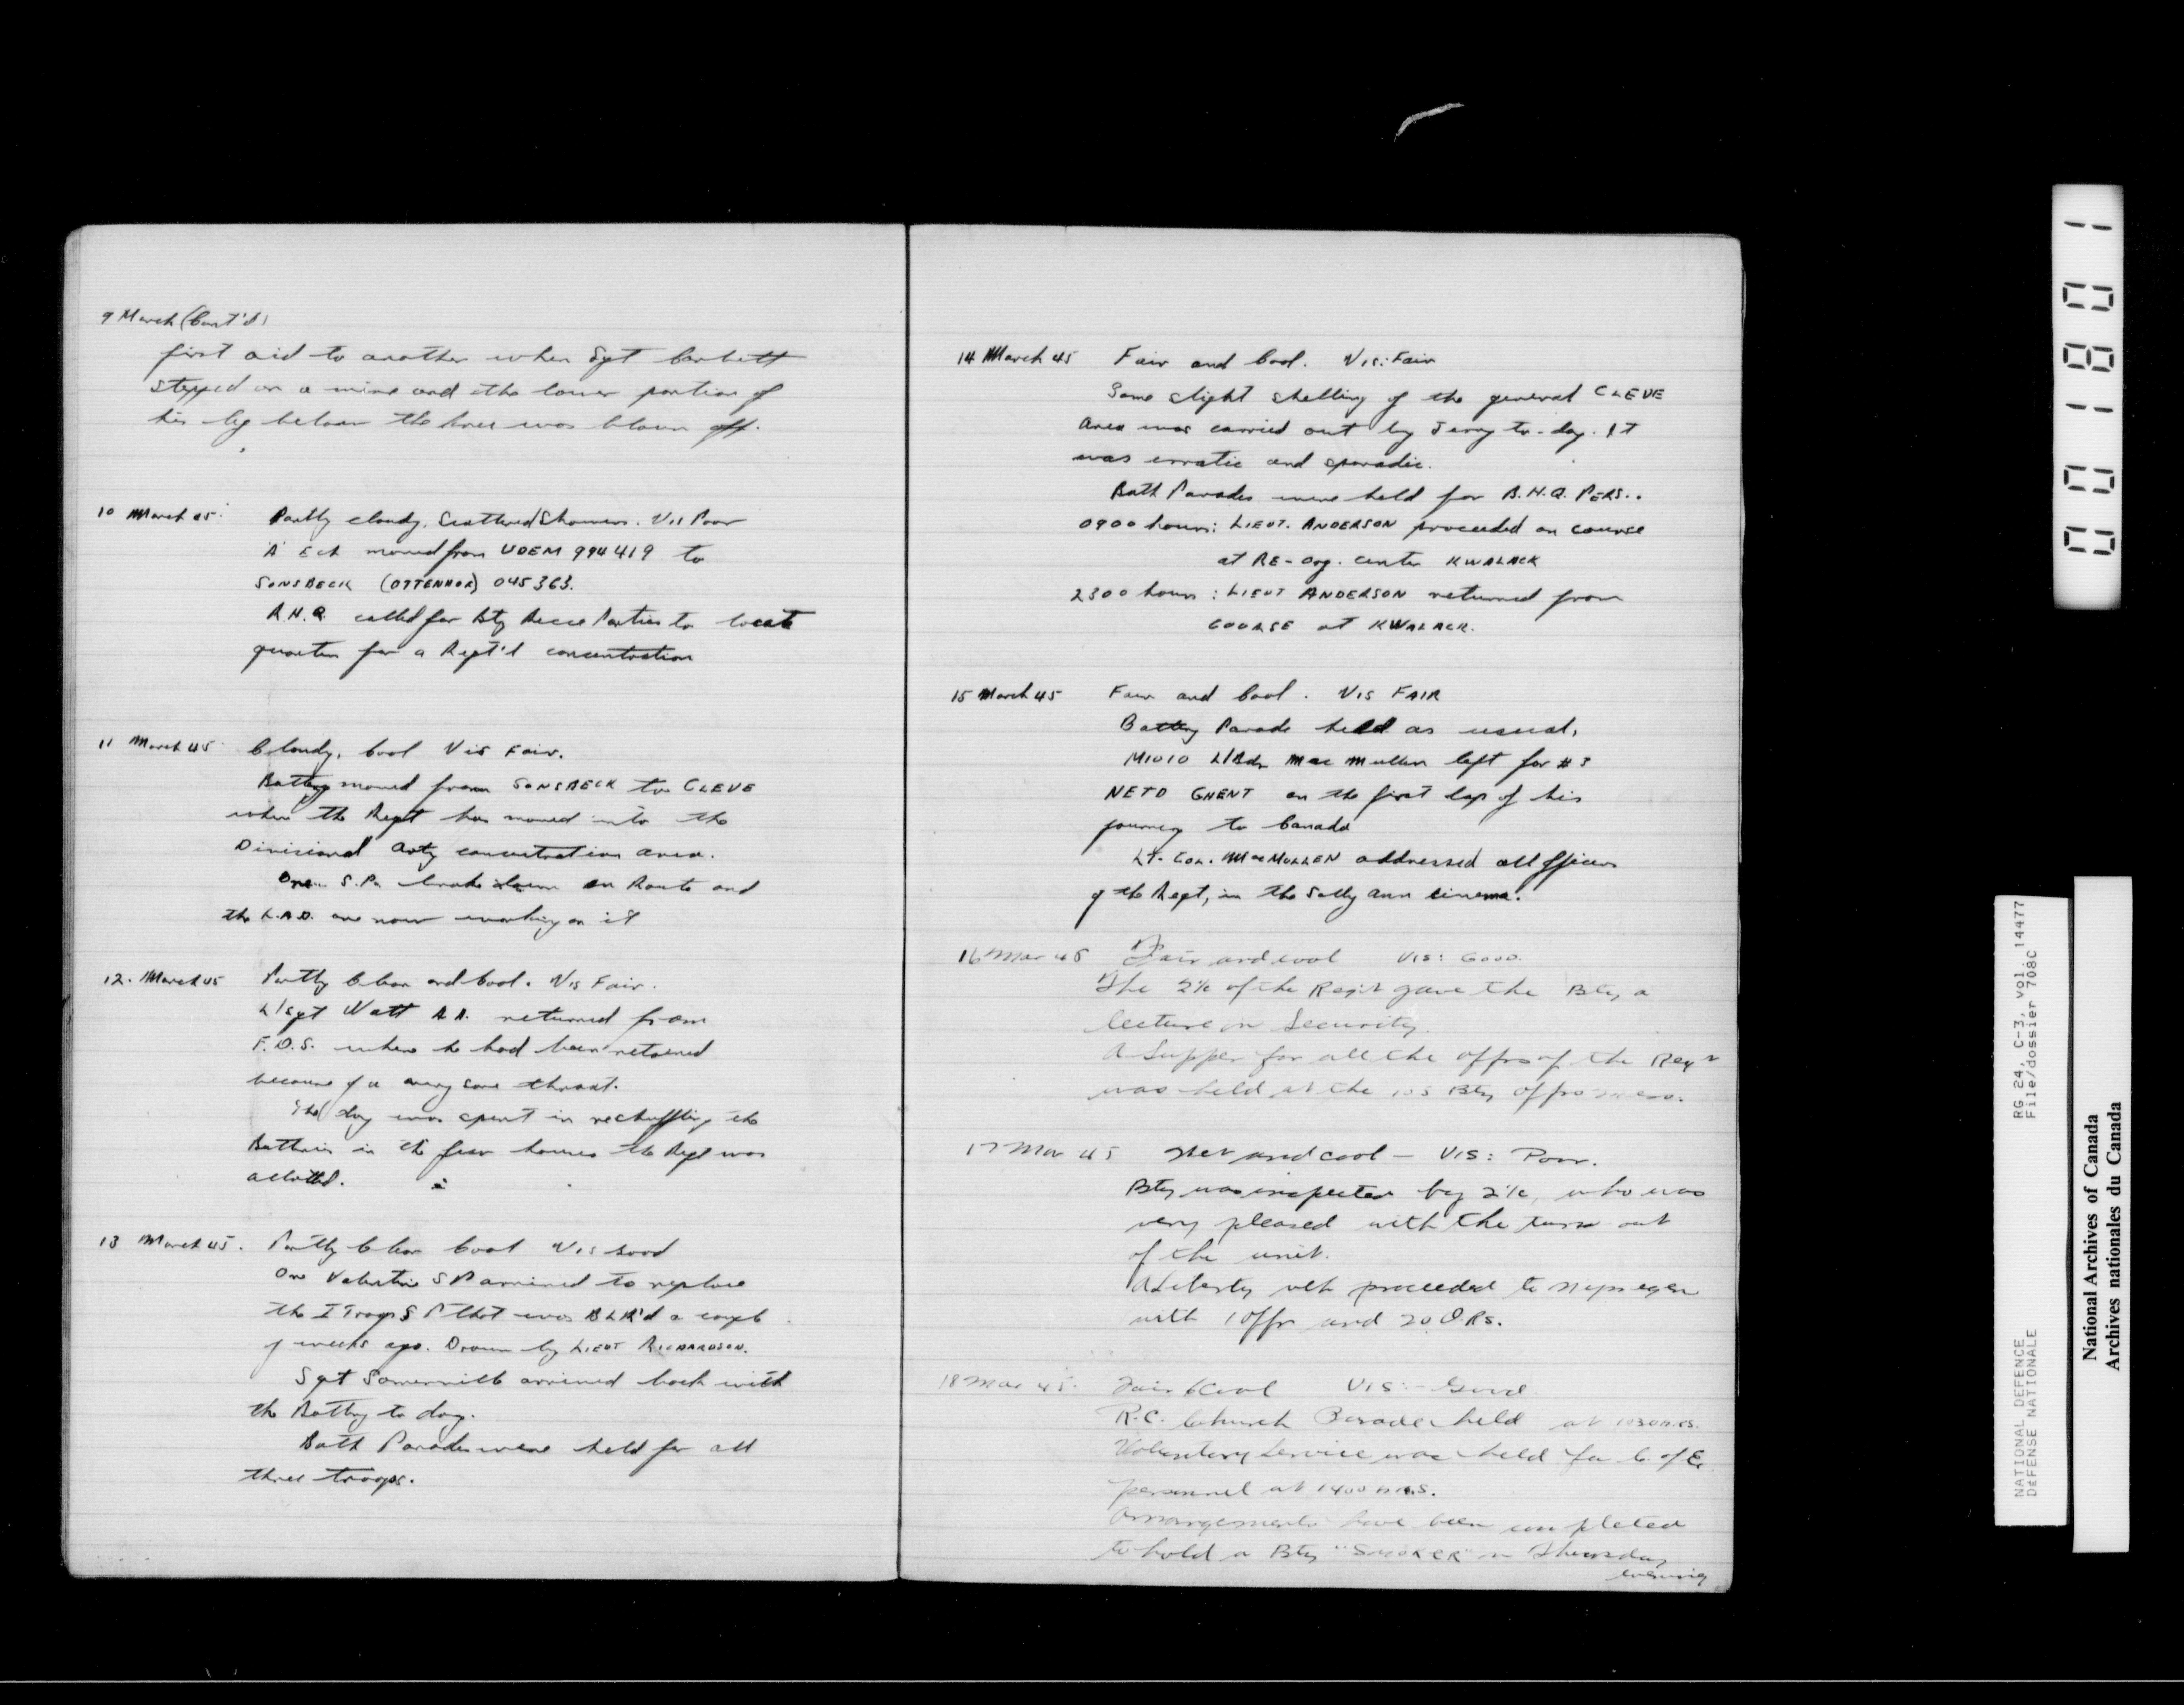 9 March (Cont'd)
first aid to another when Sgt Corbett
stepped on a mine and the lower portion of
his leg below the knee was blown off.
10 March 45. Partly cloudy, Scattered Showers. Vis Poor
'A' Ech moved from UDEM 994419 to
SONSBECK (OTTENHOR) 045363.
R.H.Q. called for Bty Recce Parties to locate
quarters for a Regt'l concentration
11 March 45 Cloudy, Cool Vis Fair.
Battery moved from SONSBECK to CLEVE
where the Regt has moved into the
Divisional Arty concentration area.
One S.P. broke down en Route and
the L.A.D. are now working on it
12. March 45 Partly Clear and Cool. Vis Fair.
L/Sgt Watt A.A. returned from
F.D.S. where he had been retained
because of a very sore throat.
The day was spent in reshuffling the
Batteries in the few houses the Regt was
allotted.
13 March 45. Partly Clear Cool Vis Good
One Valentine SP arrived to replace
the I Troop SP that was BLR'd a couple
of weeks ago. Drawn by LIEUT RICHARDSON.
Sgt Somerville arrived back with
the Battery to day.
Bath Parades were held for all
three troops.
14 March 45 Fair and Cool. Vis: Fair
Some slight shelling of the general CLEVE
Area was carried out by Jerry to-day. It
was erratic and sporadic.
Bath Parades were held for B.H.Q. PERS..
0900 hours: LIEUT. ANDERSON proceeded on course
at RE-Org. center KWALACK
2300 hours: LIEUT ANDERSON returned from
COURSE at KWALACK.
15 March 45 Fair and Cool. Vis FAIR
Battery Parade held as usual,
M1010 L/Bdr MacMullen left for #3
NETD GHENT on the first lap of his
journey to Canada
Lt. Col. MacMULLEN addressed all officers
of the Regt, in the Sally Ann cinema.
16 Mar 45 Fair and cool Vis: Good.
The 2i/c of the Reg't gave the Bty a
lecture on Security.
A Supper for all the offrs of the Reg't
was held at the 105 Bty offrs mess.
17 Mar 45 Wet and cool - VIS: Poor.
Bty was inspected by 2i/c, who was
very pleased with the turn out
of the unit.
A Liberty veh proceeded to Nijmegen
with 1 Offr and 20 O.Rs.
18 Mar 45. Fair & Cool VIS:- Good
R.C. Church Parade held at 1030 hrs.
Voluntary Service was held for C. of E.
personnel at 1400 hrs.
Arrangements have been completed
to hold a Bty "SMOKER" on Thursday
evening
001801
RG 24, C-3, vol. 14477
File/dossier 708C
NATIONAL DEFENCE
DEFENSE NATIONALE
National Archives of Canada
Archives nationales du Canada